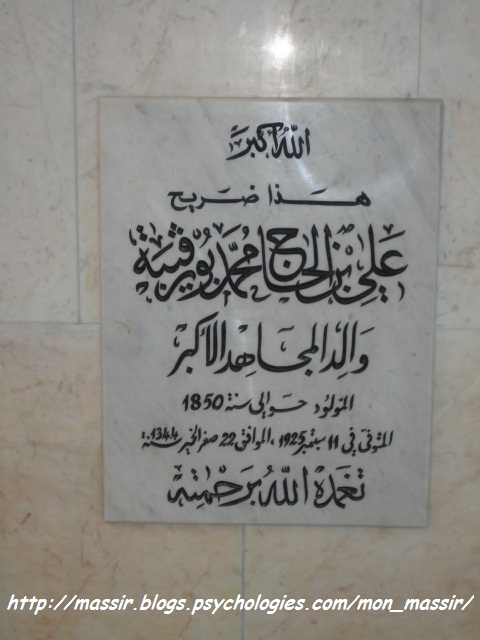 الله أكبر
هذا ضريح
علي بن الحاج محمد بورقيبة
والد المجاهد الأكبر
المولود حوالي سنة 1850
المتوفى في 11 سبتمبر 1925، الموافق 22 صفر الخير سنة 1344
تغمده الله برحمته
http://massir.blogs.psychologies.com/mon_massir/